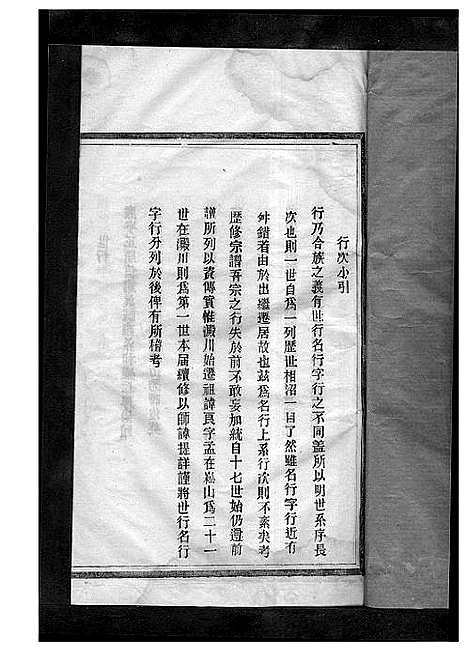 行次小引
行乃合族之義有世行名行字行之不同蓋所以明世系序長
次也則一世自為一列歷世相沿一目了然雖名行字行近有
舛錯者由於出繼遷居故也茲為名行上系行次則不紊矣考
歷修宗譜吾宗之行失於前不敢妄加統自十七世始仍遵前
譜所列以資傳實惟澱川始遷祖諱良字孟在嵩山為二十一
世在澱川則為第一世本屆續修以師諱提詳謹將世行名行
字行分列於後俾有所稽考